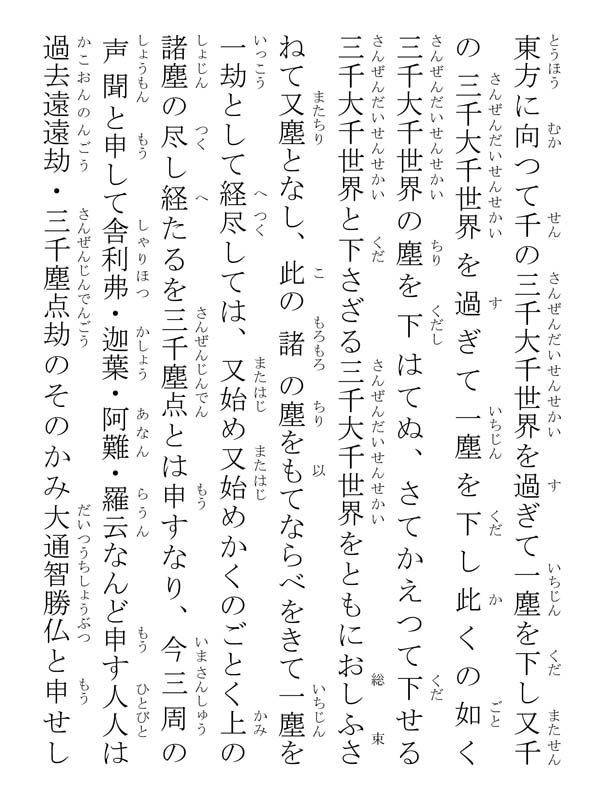 東方に向つて千の三千大千世界を過ぎて一塵を下し又千
の三千大千世界を過ぎて一塵を下し此くの如く
三千大千世界の塵を下はてぬ、さてかえつて下せる
三千大千世界と下さざる三千大千世界をともにおしふさ
ねて又塵となし、此の諸の塵をもてならべをきて一塵を
一劫として経尽しては、又始め又始めかくのごとく上の
諸塵の尽し経たるを三千塵点とは申すなり、今三周の
声聞と申して舎利弗・迦葉・阿難・羅云なんど申す人人は
過去遠遠劫・三千塵点劫のそのかみ大通智勝仏と申せし